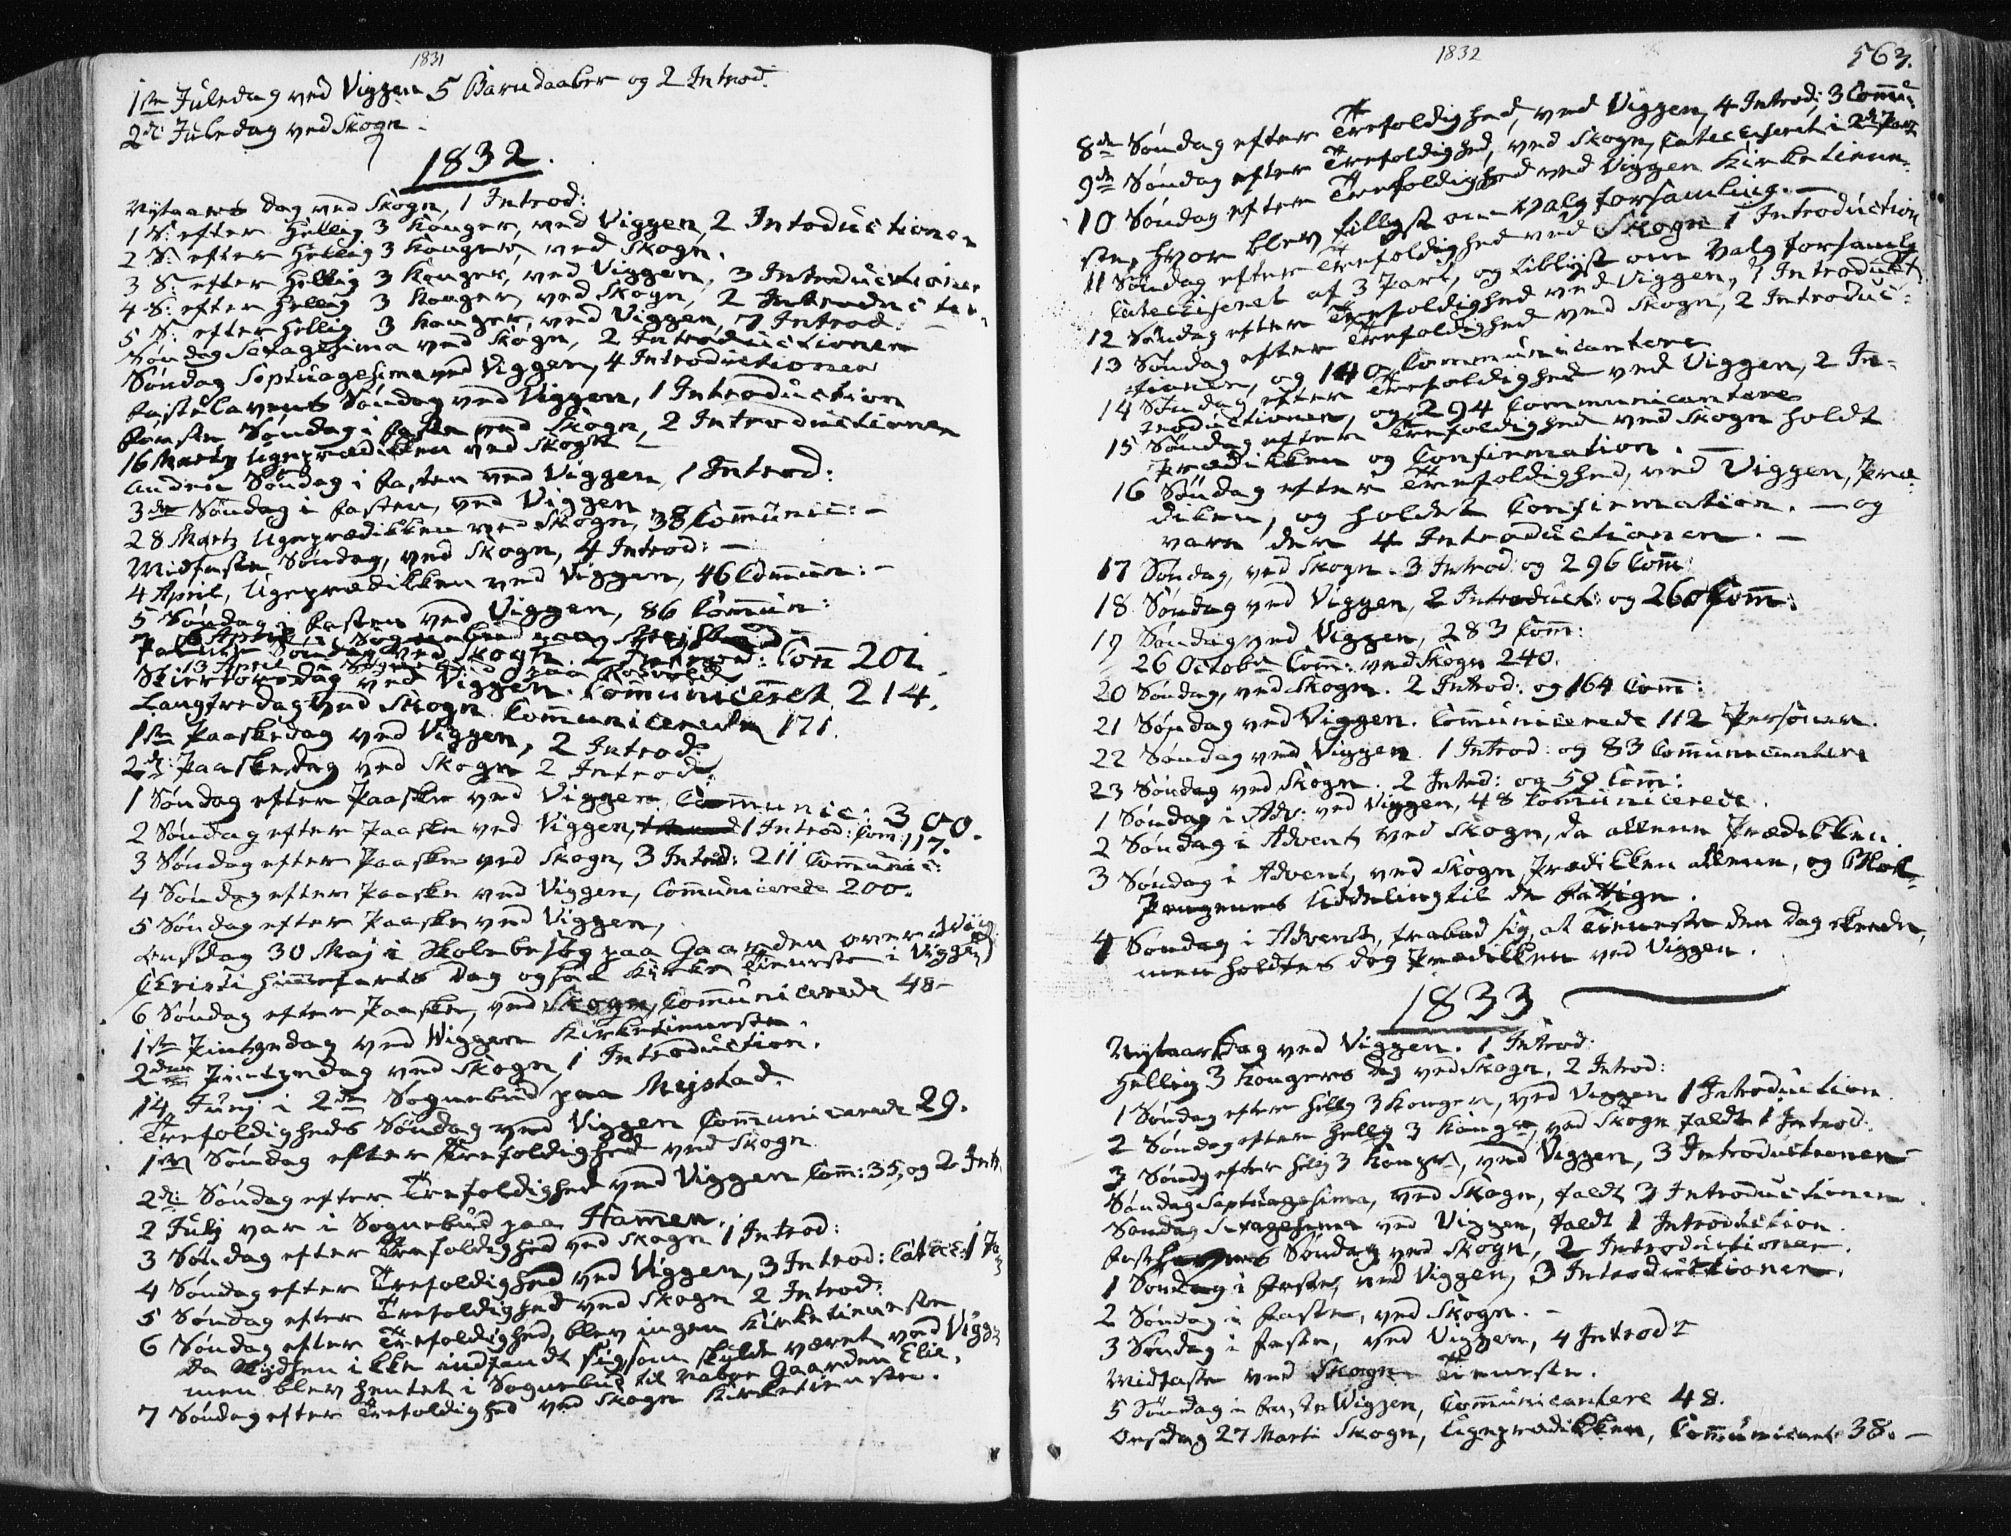 1831
1ste Juledag ved Viggen 5 Barndaaber og 2 Introd:
2de Juledag ved Skogn.
1832.
Nytaars Dag ved Skogn, 1 Introd:
1 S: efter Hellig 3 Konger, ved Viggen 2 Intoductioner
2 S: efter Hellig 3 Konger, ved Skogn.
3 S: efter Hellig 3 Konger, ved Viggen, 3 Introductioner
4 S: efter Hellig 3 Konger, ved Skogn, 2 Introductio:
5 S: efter Hellig 3 Konger, ved Viggen, 7 Introd:
Søndag Sexagesima ved Skogn, 2 Introductioner
Søndag Septuagesima ved Viggen, 4 Introductioner
Fastelavens Søndag ved Viggen, 1 Introduction
Første Søndag i Fasten ved Skogn, 2 Introductioner
16 Martz Ugeprædikken ved Skogn
Anden Søndag i Fasten ved Viggen 1 Introd:
3die Søndag i Fasten, ved Viggen
28 Martz Ugeprædikken ved Skogn, 38 Comunic: -
Midfaste Søndag, ved Skogn, 4 Introd: -
4 April, Ugeprædikken ved Viggen, 46 Comunn: -
5 Søndag i Fasten ved Viggen, 86 Comun:
April i Sognebud paa
Palme Søndag ved Skogn. Introd: Com 202
13 April i Sognebud paa
Skiertorsdag ved Viggen. Comuniceret 214.
Langfredag ved Skogn Comunicerede 171.
1ste Paaskedag ved Viggen, 2 Introd:
2de Paaskedag ved Skogn 2 Introd:
1 Søndag efter Paaske ved Viggen Comunic: 300.
2 Søndag efter Paaske ved Viggen, 1 Introd: Com: 117.
3 Søndag efter Paaske ved Skogn, 3 Introd: 211 Comunic:
4 Søndag efter Paaske ved Viggen, Comunicerede 200.
5 Søndag efter Paaske ved Viggen,
Onsdag 30 Maj i Skolebesøg paa Gaarden over Wiig
Christi Himmefarts Dag og holdt Kirke Tieneste i Viggen
6 Søndag efter Paaske, ved Skogn, Comunicerede 48-
1ste Pintzedag ved Wiggen Kirketieneste.
2den Pintzedag ved Skogn, 1 Introduction.
14 Junj i 2de Sognebud paa Mejstad.
Trefoldigheds Søndag ved Viggen Comunicerede 29.
1ste Søndag efter Trefoldighed ved Skogn
2de: Søndag efter Trefoldighed ved Viggen Com: 35, og 2 Intr.
2 Julj var i Sognebud paa Hamen.
3 Søndag efter Trefoldighed ved Skogn 1 Introd:
4 Søndag efter Trefoldighed ved Viggen, 3 Introd: Catec: 1
5 Søndag efter Trefoldighed ved Skogn 2 Introd:
6 Søndag efter Trefoldighed, blev ingen Kirketieneste
da Skydsen ikke indfandt sig, som skulde været ved Viggen
men blev hentet i Sognebud til Nabve Gaarden Elie.
7 Søndag efter Trefoldighed ved Skogn Kirketieneste.
1832
563.
8de Søndag efter Trefoldighed, ved Viggen, 4 Introd: 3 Comu:
9de Søndag efter Trefoldighed, ved Skogn, Catechiseret i 2de Part
10 Søndag efter Trefoldighed ved Viggen Kirketiene-
ste, hvor blev tillyst om Valgforsamling. -
11 Søndag efter Trefoldighed ved Skogn 1 Introduction
Catechiseret af 3 Part, og tillyst om Valgforsamlg
12 Søndag efter Trefoldighed ved Viggen, 7 Introduct
13 Søndag efter Trefoldighed ved Skogn, 2 Introduc:
tioner, og 140 Communicantere
14 Søndag efter Trefoldighed ved Viggen, 2 In-
troductioner, og 294 Communicantere
15 Søndag efter Trefoldighed ved Skogn holdt
Prædikken og Confirmation. -
16 Søndag efter Trefoldighed, ved Viggen, Præ-
diken, og holdet Confirmation. - og
vare der 4 Introductioner. -
17 Søndag, ved Skogn. 3 Introd: og 296 Com:
18 Søndag ved Viggen, 2 Introduct: og 260 Com:
19 Søndag ved Viggen, 283 Com:
26 Octobr Com: ved Skogn 240.
20 Søndag, ved Skogn. 2 Introd: og 164 Com:
21 Søndag ved Viggen. Comunicerede 112 Personer.
22 Søndag ved Viggen 1 Introd: og 83 Comunicantere
23 Søndag ved Skogn. 2 Intrd: og 59 Com:
1 Søndag i Adv: ved Viggen, 48 Comunicerede.
2 Søndag i Advent ved Skogn, da allene Prædikken.
3 Søndag i Advent, ved Skogn Prædikken allene, og
Pengenes Uddeling til de Fattige.
4 Søndag i Advent, frabad sig, at Tieneste den Dag skeede,
men holdtes dog Prædikken ved Viggen.
1833
Nytaarsdag ved Viggen. 1 Introd:
Hellig 3 Kongers Dag ved Skogn, 2 Introd:
1 Søndag efter Hellg 3 Konger, ved Viggen 1 Introduction.
2 Søndag efter Hellg 3 Konger, ved Skogn faldt 1 Introd:
3 Søndg efter Helg 3 Konger, ved Viggen, 3 Introductioner
Søndag Septuagesima, ved Skogn, faldt 3 Introductioner
Søndag Sexagesima ved Viggen, faldt 1 Introduction.
Søndag ved Skogn, 2 Introductioner.
1 Søndag i Faste, ved Viggen, 3 Introductioner.
2 Søndag i Faste, ved Skogn. -
3 Søndag i Faste, ved Viggen, 4 Introd:
Midfaste ved Skogn Tieneste.
5 Søndag i Faste Wiggen, Comunicantere 48.
Onsdag 27 Marti Skogn, Ugeprædikken, Comunicant: 38. -